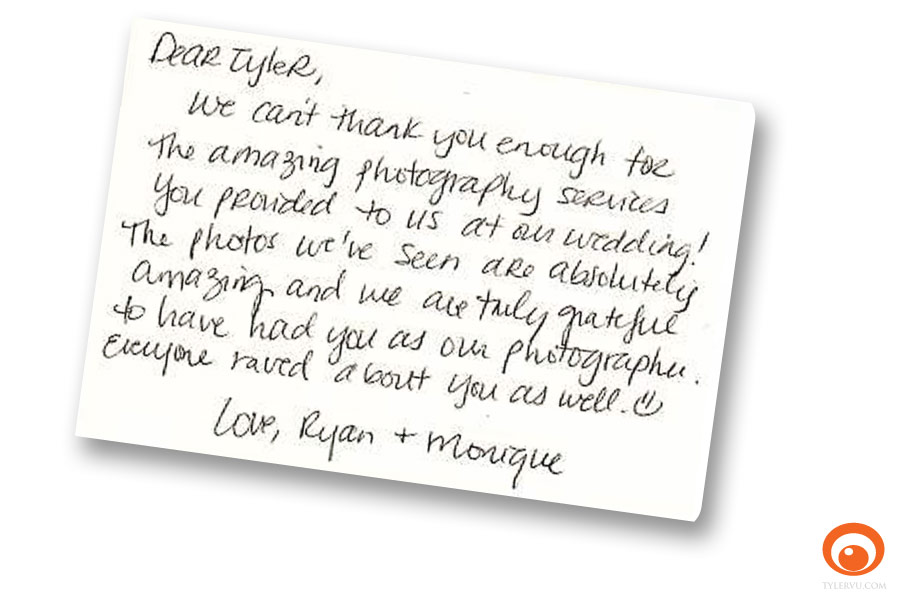 Dear Tyler,
We can't thank you enough for
the amazing photography services
you provided to us at our wedding!
The photos we've seen are absolutely
amazing, and we are truly grateful
to have had you as our photographer.
Everyone raved about you as well. ☺
Love, Ryan + Monique
TYLERVU.COM